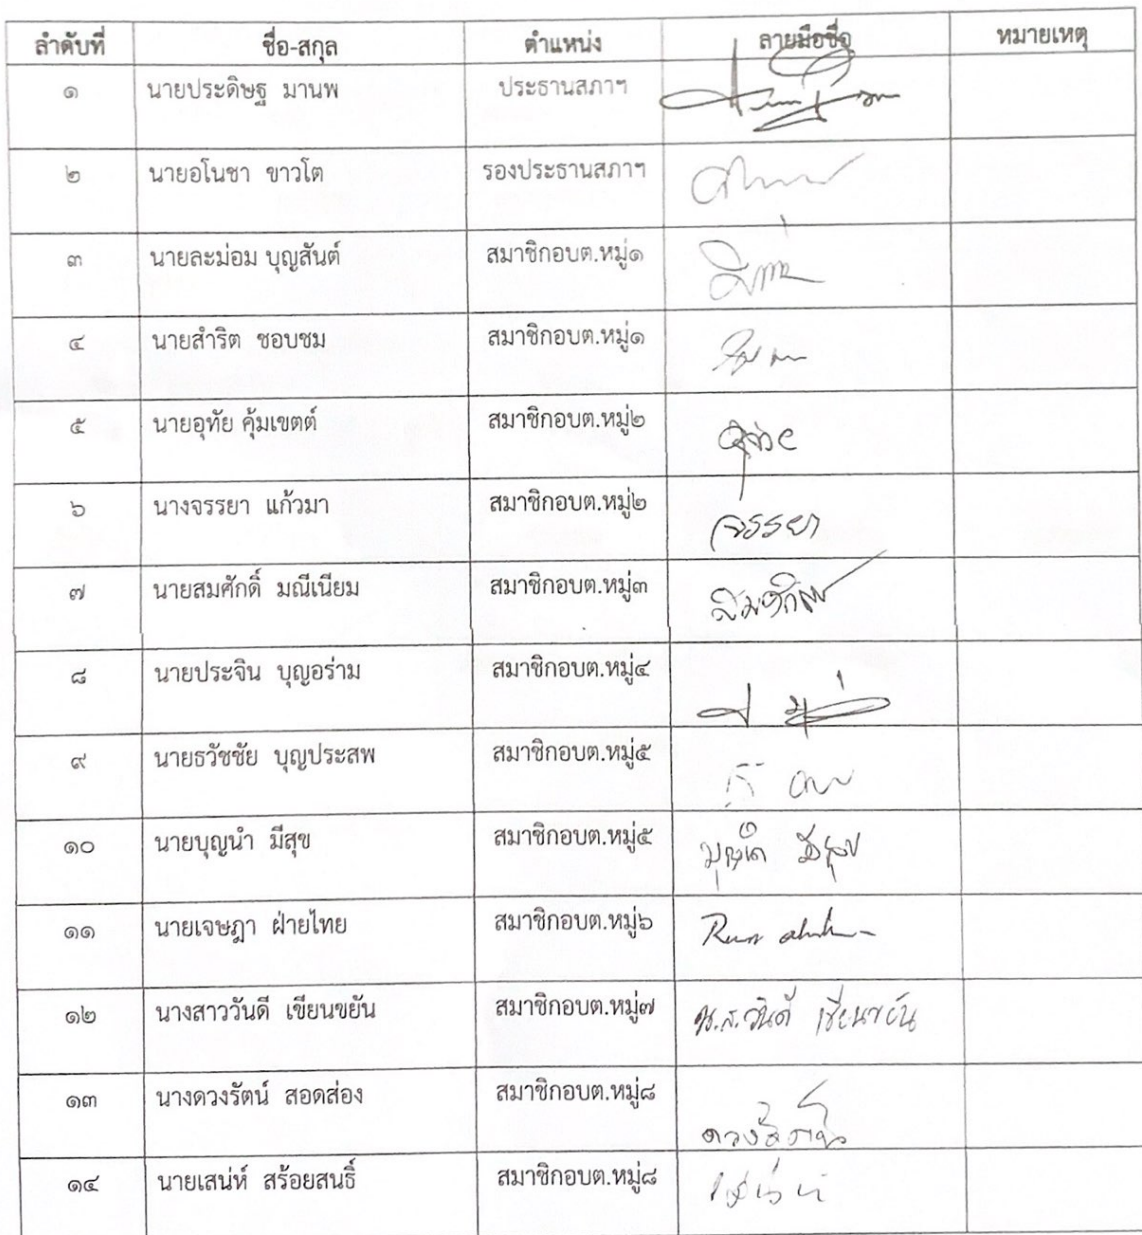 ลำดับที่ ชื่อ-สกุล ตำแหน่ง ลายมือชื่อ หมายเหตุ
๑ นายประดิษฐ มานพ ประธานสภาฯ
๒ นายอโนชา ขาวโต รองประธานสภาฯ
๓ นายละม่อม บุญสันต์ สมาชิกอบต.หมู่๑
๔ นายสำริต ชอบชม สมาชิกอบต.หมู่๑
๕ นายอุทัย คุ้มเขตต์ สมาชิกอบต.หมู่๒
๖ นางจรรยา แก้วมา สมาชิกอบต.หมู่๒ จรรยา
๗ นายสมศักดิ์ มณีเนียม สมาชิกอบต.หมู่๓
๘ นายประจิน บุญอร่าม สมาชิกอบต.หมู่๔
๙ นายธวัชชัย บุญประสพ สมาชิกอบต.หมู่๕
๑๐ นายบุญนำ มีสุข สมาชิกอบต.หมู่๕
๑๑ นายเจษฎา ฝ่ายไทย สมาชิกอบต.หมู่๖
๑๒ นางสาววันดี เขียนขยัน สมาชิกอบต.หมู่๗ น.ส.วันดี เขียนขยัน
๑๓ นางดวงรัตน์ สอดส่อง สมาชิกอบต.หมู่๘
๑๔ นายเสน่ห์ สร้อยสนธิ์ สมาชิกอบต.หมู่๘